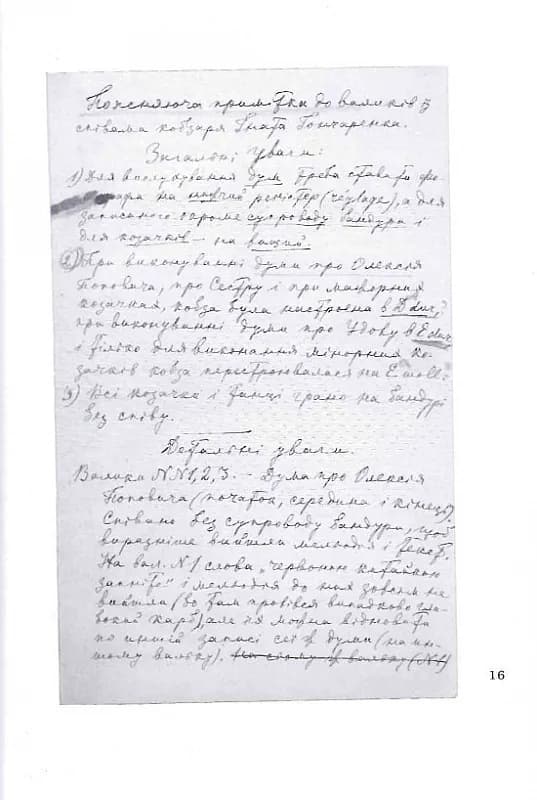 Поясняюча примітка до валиків із
співама кобзаря Гната Гончаренка.
Загальні уваги:
1) Для вислухування дум треба ставити фо-
нографа на низчий регістер (réglage), а для
записаного окроме супроводу бандури і
для козачків – на вищий.
2) При виконуванні думи про Олексія
Поповича, про Сестру і при мажорних
козачках, кобза була настроєна в D dur,
при виконуванні думи про Удову в E dur
і тілько для виконання мінорних ко-
зачків кобза перестроювалася на E moll.
3) Всі козачки і танці грано на бандурі
без співу.
Детальні уваги.
Валики NN 1, 2, 3. – Дума про Олексія
Поповича (початок, середина і кінець).
Співано без супроводу бандури, щоб
виразніше вийшла мелодія і текст.
На вал. N1 слова „червоною китайкою
" і мелодія до них зовсім не
вийшли (бо там провівся випадково гли-
бокий карб), але їх можна відновити
по иншій записі сеї ж думи (на ин-
шому валику). На сьому ж валику (N1)
16